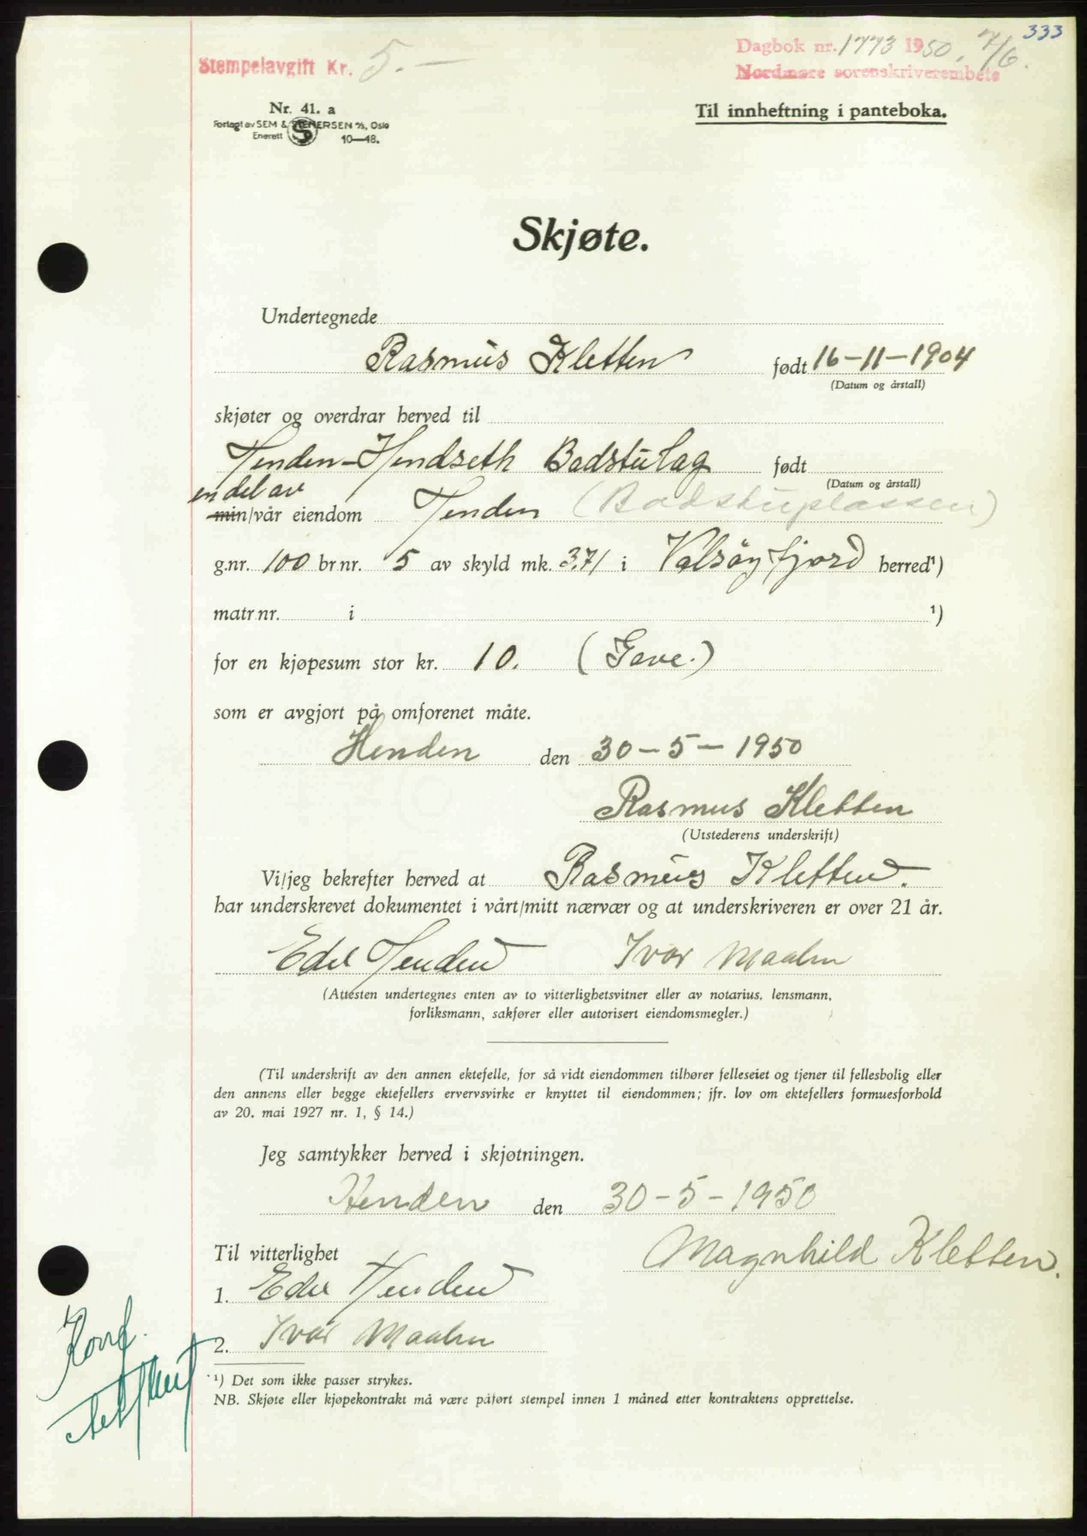 333
Stempelavgift Kr. 5.—
Dagbok nr. 1773 1950, 7/6.
Nordmøre sorenskriverembete
Nr. 41. a
Forlagt av SEM & STENERSEN A/S, Oslo
Enerett 10—48.
Til innheftning i panteboka.
Skjøte.
Undertegnede
Rasmus Kletten født 16-11-1904
(Datum og årstall)
skjøter og overdrar herved til
Henden-Hendseth Badstulag født
(Datum og årstall)
en del av
min/vår eiendom Henden (Badstuplassen)
g.nr. 100 br.nr. 5 av skyld mk. 3,71 i Valsøyfjord herred¹)
matr.nr. i ¹)
for en kjøpesum stor kr. 10. (Gave.)
som er avgjort på omforenet måte.
Henden den 30-5-1950
Rasmus Kletten
(Utstederens underskrift)
Vi/jeg bekrefter herved at Rasmus Kletten.
har underskrevet dokumentet i vårt/mitt nærvær og at underskriveren er over 21 år.
Edel Henden Ivar Maalen
(Attesten undertegnes enten av to vitterlighetsvitner eller av notarius, lensmann,
forliksmann, sakfører eller autorisert eiendomsmegler.)
(Til underskrift av den annen ektefelle, for så vidt eiendommen tilhører felleseiet og tjener til fellesbolig eller
den annens eller begge ektefellers ervervsvirke er knyttet til eiendommen; jfr. lov om ektefellers formuesforhold
av 20. mai 1927 nr. 1, § 14.)
Jeg samtykker herved i skjøtningen.
Henden den 30-5-1950
Magnhild Kletten.
Til vitterlighet
1. Edel Henden
2. Ivar Maalen
Konf.
¹) Det som ikke passer strykes.
NB. Skjøte eller kjøpekontrakt må være påført stempel innen 1 måned etter kontraktens opprettelse.